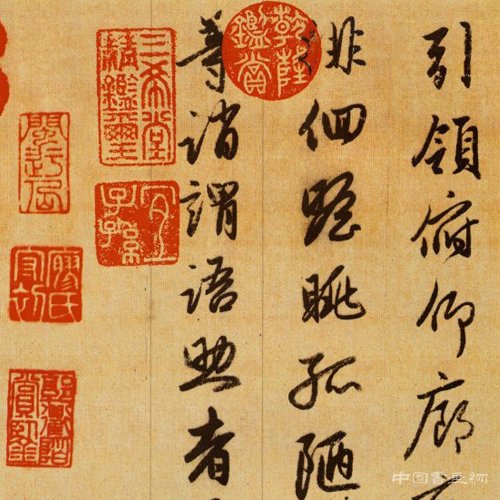 引領俯仰廊
徘徊瞻眺孤陋
等誚謂語助者
乾隆鑑賞
三希堂精鑑璽
宜子孫
中国書画網